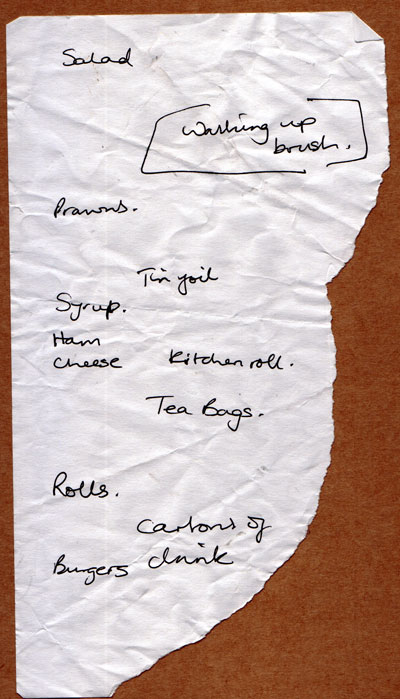 Salad
Washing up
brush.
Prawns.
Tin foil
Syrup.
Ham
Cheese
Kitchen roll.
Tea Bags.
Rolls.
Cartons of
drink
Burgers